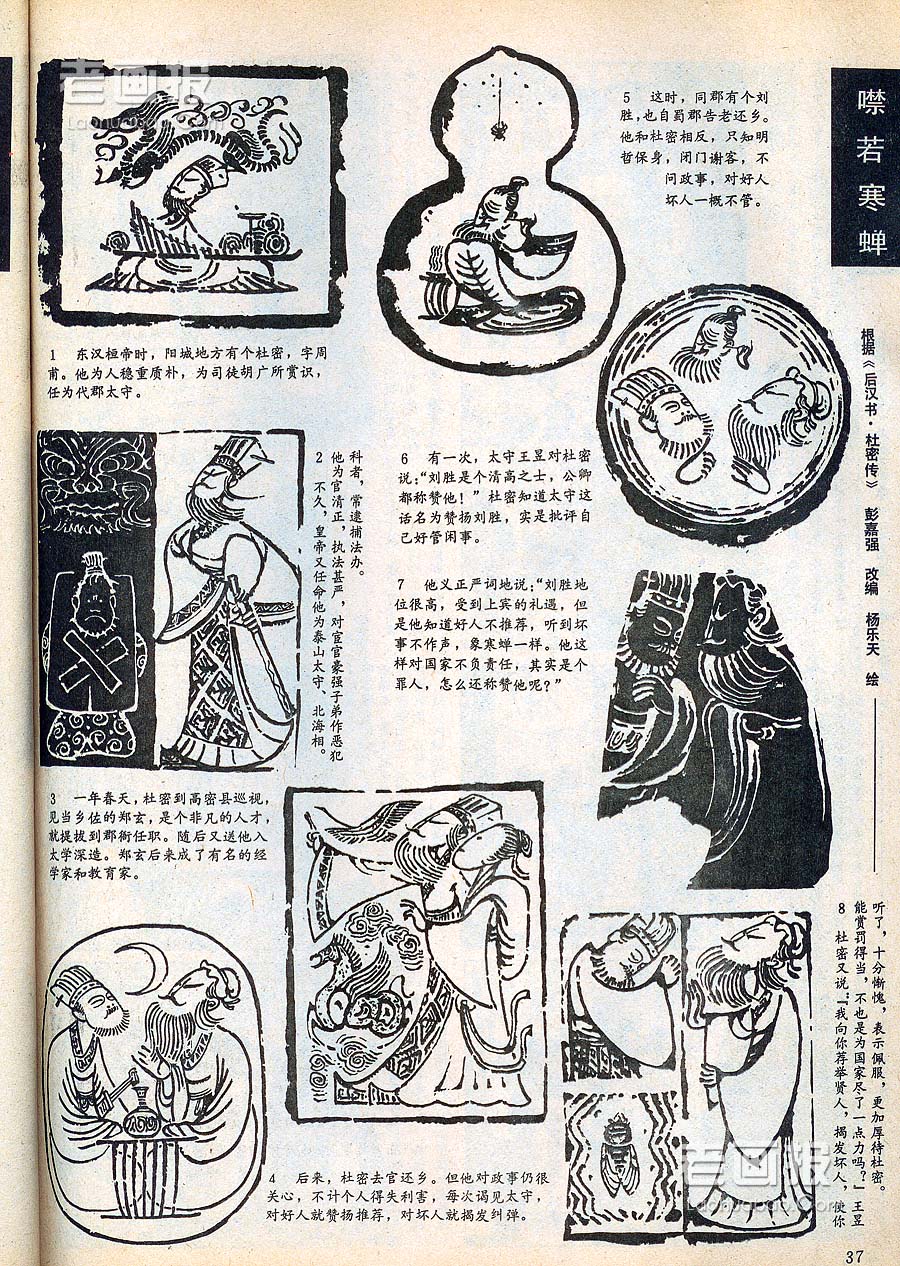 老画报
Laohuabao.com
噤若寒蝉
根据《后汉书·杜密传》 彭嘉强 改编 杨乐天 绘
1 东汉桓帝时，阳城地方有个杜密，字周
甫。他为人稳重质朴，为司徒胡广所赏识，
任为代郡太守。
2 不久，皇帝又任命他为泰山太守、北海相。
他为官清正，执法甚严，对宦官豪强子弟作恶犯
科者，常逮捕法办。
3 一年春天，杜密到高密县巡视，
见当乡佐的郑玄，是个非凡的人才，
就提拔到郡衙任职。随后又送他入
太学深造。郑玄后来成了有名的经
学家和教育家。
4 后来，杜密去官还乡。但他对政事仍很
关心，不计个人得失利害，每次谒见太守，
对好人就赞扬推荐，对坏人就揭发纠弹。
5 这时，同郡有个刘
胜，也自蜀郡告老还乡。
他和杜密相反，只知明
哲保身，闭门谢客，不
问政事，对好人
坏人一概不管。
6 有一次，太守王昱对杜密
说：“刘胜是个清高之士，公卿
都称赞他！”杜密知道太守这
话名为赞扬刘胜，实是批评自
己好管闲事。
7 他义正严词地说：“刘胜地
位很高，受到上宾的礼遇，但
是他知道好人不推荐，听到坏
事不作声，象寒蝉一样。他这
样对国家不负责任，其实是个
罪人，怎么还称赞他呢？”
8 杜密又说：“我向你荐举贤人，揭发坏人，使你
能赏罚得当，不也是为国家尽了一点力吗？”王昱
听了，十分惭愧，表示佩服，更加厚待杜密。
老画报
Laohuabao.com
37